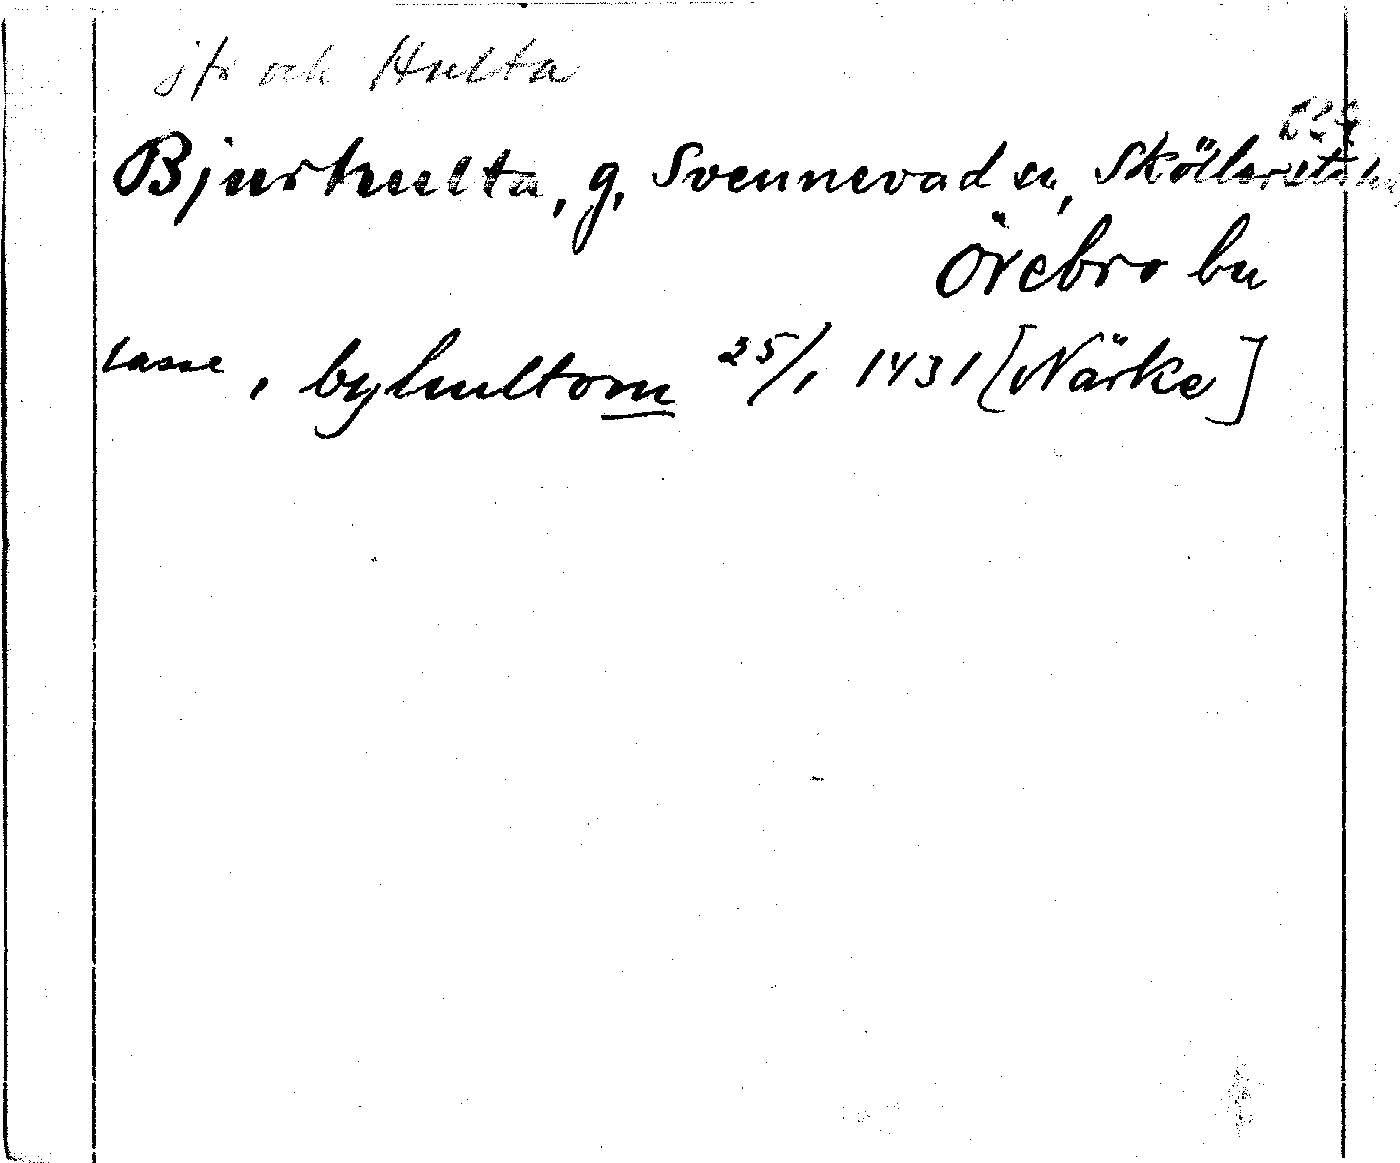 jfr och Hulta
Bjurhulta, g, Svennevad sn, Sköllersta hd
Örebro ln
lasse, byhultom 25/1 1431 [Närke]